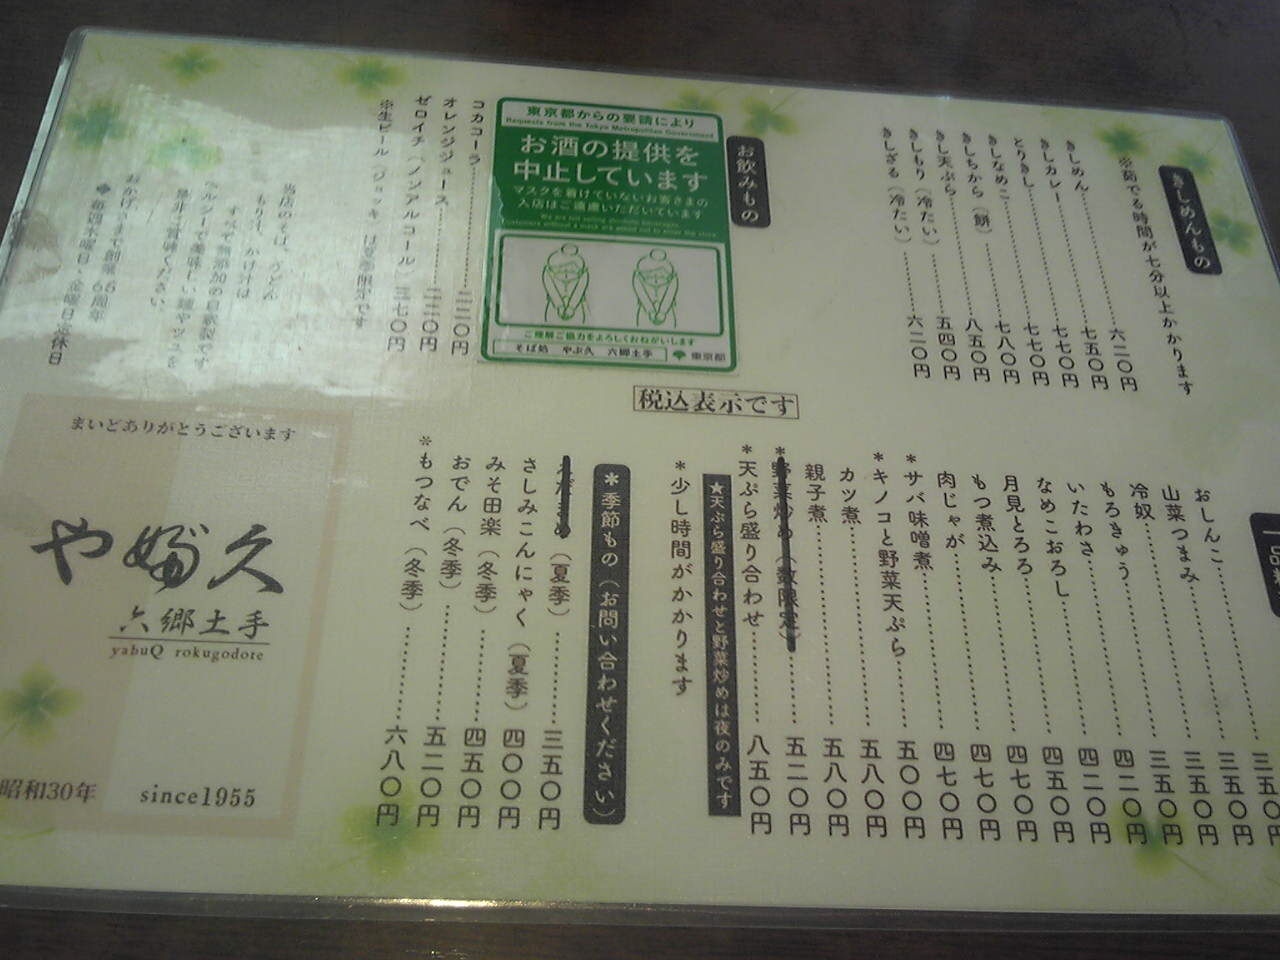 きしめんもの
※茹でる時間が七分以上かかります
きしめん…………六二〇円
きしカレー…………七五〇円
とりきし…………七七〇円
きしなめこ…………七七〇円
きしちから(餅)…………七八〇円
きし天ぷら…………八五〇円
きしもり(冷たい)…………五四〇円
きしざる(冷たい)…………六二〇円
お飲みもの
東京都からの要請により
Requests from the Tokyo Metropolitan Government
お酒の提供を
中止しています
マスクを着けていないお客さまの
入店はご遠慮いただいています
ご理解ご協力をよろしくおねがいします
そば処 やぶ久 六郷土手
東京都
コカコーラ…………二二〇円
オレンジジュース…………二二〇円
ゼロイチ(ノンアルコール)三七〇円
※生ビール(ジョッキ)は夏季限定です
当店のそば、うどん
もりそば、かけ汁は
すべて無添加の自家製です
◆毎週木曜日・金曜日定休日
税込表示です
一品
おしんこ…………三五〇円
山菜つまみ…………三五〇円
冷奴…………三五〇円
もろきゅう…………三五〇円
いたわさ…………四二〇円
なめこおろし…………四二〇円
月見とろろ…………四五〇円
もつ煮込み…………四七〇円
肉じゃが…………四七〇円
*サバ味噌煮…………四七〇円
*キノコと野菜天ぷら…………五〇〇円
カツ煮…………五八〇円
親子煮…………五八〇円
*野菜炒め(数限定)…………五二〇円
*天ぷら盛り合わせ…………八五〇円
★天ぷら盛り合わせと野菜炒めは夜のみです
*少し時間がかかります
*季節もの(お問い合わせください)
えだまめ(夏季)…………三五〇円
さしみこんにゃく(夏季)四〇〇円
みそ田楽(冬季)…………四五〇円
おでん(冬季)…………五二〇円
*もつなべ(冬季)…………六八〇円
まいどありがとうございます
や婦久
六郷土手
yabuQ rokugodore
昭和30年 since1955